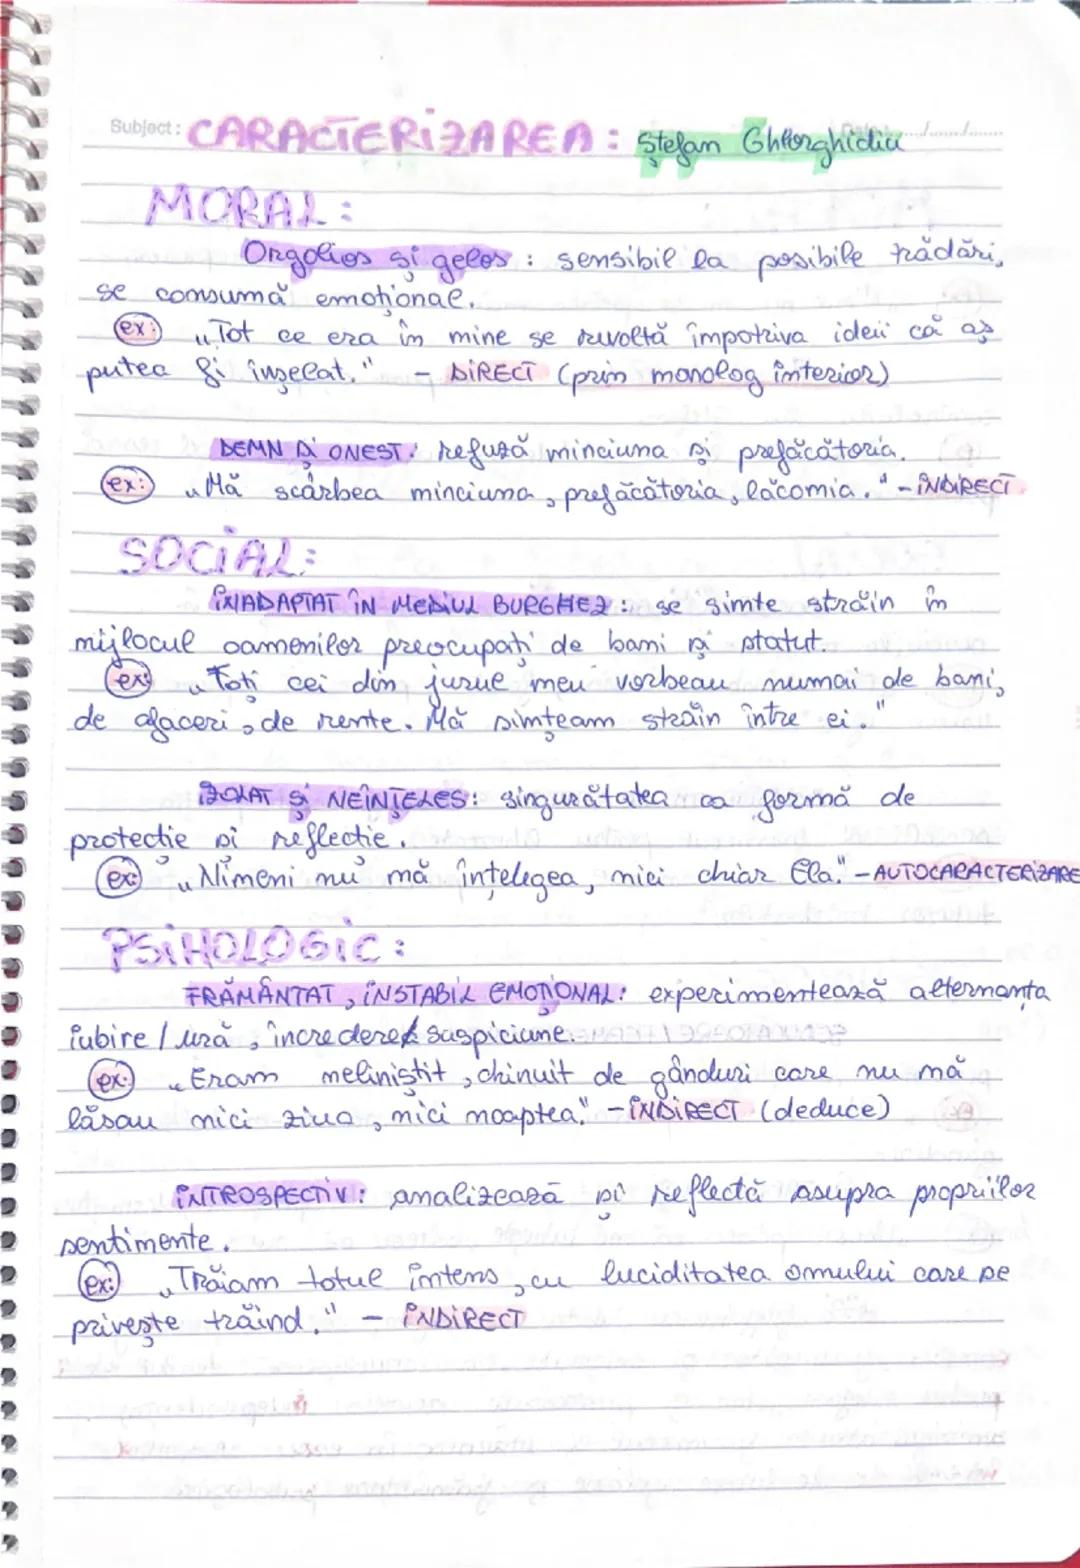 Subject: CARACTERIZAREA: Ștefan Gheorghidiu
MORAL:
Orgolios și gelos: sensibil la posibile trădări,
se consumă emoțional.
ex: "Tot ce era în mine se revoltă împotriva ideii că aș
putea fi înșelat." - DIRECT (prin monolog interior)
DEMN ȘI ONEST: refuză minciuna și prefăcătoria.
ex: "Mă scârbea minciuna, prefăcătoria, lăcomia." - INDIRECT
SOCIAL:
INADAPTAT ÎN MEDIUL BURGHEZ: se simte străin în
mijlocul oamenilor preocupați de bani și statut.
ex: "Toți cei din jurul meu vorbeau numai de bani,
de afaceri, de rente. Mă simțeam străin între ei."
IZOLAT ȘI NEÎNȚELES: singurătatea ca formă de
protecție și reflecție.
ex: "Nimeni nu mă înțelegea, nici chiar Ela." - AUTOCARACTERIZARE
PSIHOLOGIC:
FRĂMÂNTAT, INSTABIL EMOȚIONAL: experimentează alternanța
iubire / ură, încredere / suspiciune.
ex: "Eram neliniștit, chinuit de gânduri care nu mă
lăsau nici ziua, nici noaptea." - INDIRECT (deduce)
INTROSPECTIV: analizează și reflectă asupra propriilor
sentimente.
ex: "Trăiam totul intens, cu luciditatea omului care se
privește trăind." - INDIRECT